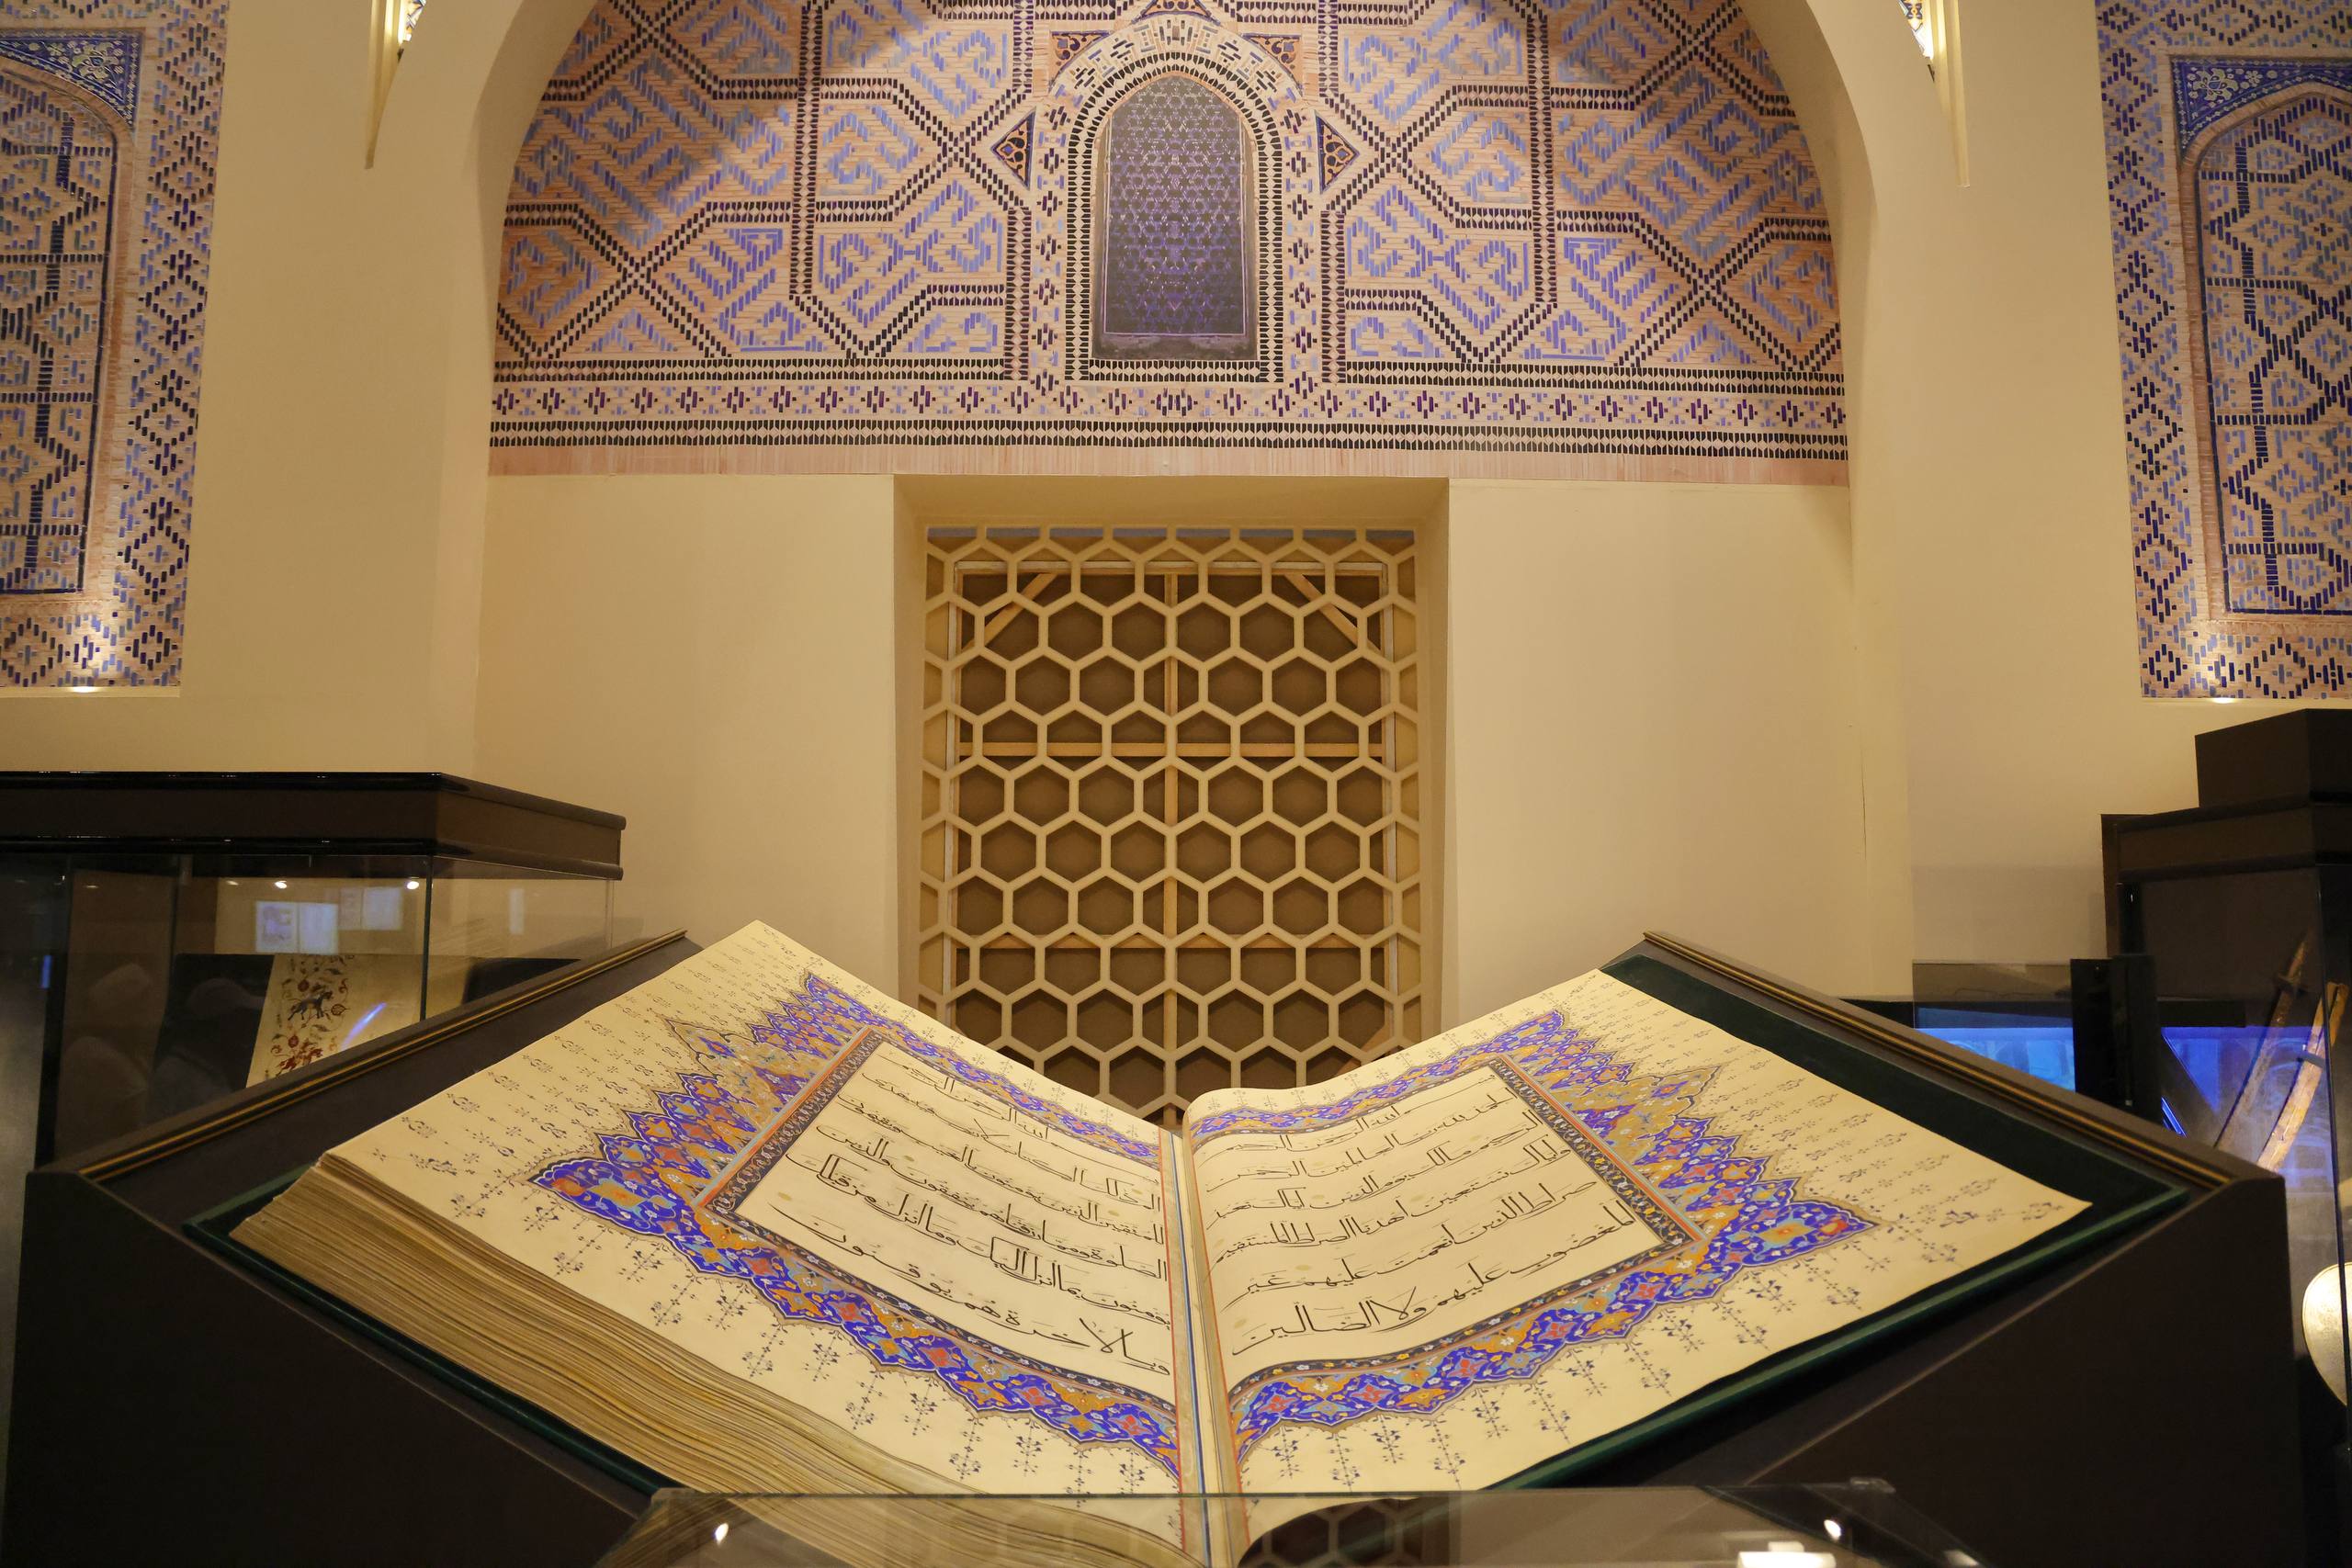 بسم الله الرحمن الرحيم
الحمد لله رب العالمين الرحمن
الرحيم مالك يوم الدين اياك نعبد
واياك نستعين اهدنا الصراط المستقيم
صراط الذين انعمت عليهم غير
المغضوب عليهم ولا الضالين
بسم الله الرحمن الرحيم
الم ذلك الكتاب لا ريب فيه هدى
للمتقين الذين يؤمنون بالغيب ويقيمون
الصلوة ومما رزقناهم ينفقون والذين
يؤمنون بما انزل اليك وما انزل من قبلك
وبالاخرة هم يوقنون